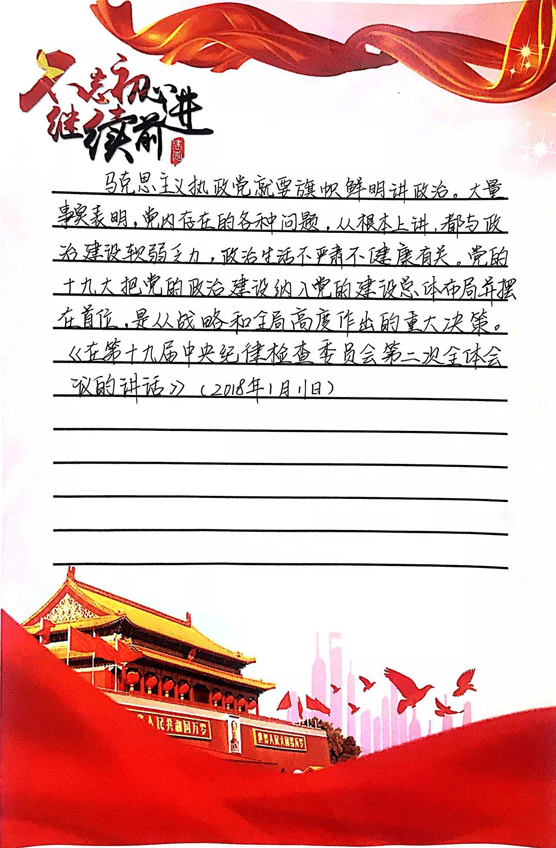 不忘初心
继续前进
马克思主义执政党就要旗帜鲜明讲政治。大量
事实表明，党内存在的各种问题，从根本上讲，都与政
治建设软弱乏力，政治生活不严肃不健康有关。党的
十九大把党的政治建设纳入党的建设总体布局并摆
在首位，是从战略和全局高度作出的重大决策。
《在第十九届中央纪律检查委员会第二次全体会
议的讲话》（2018年1月11日）
华人民共和国万岁
世界人民大团结万岁